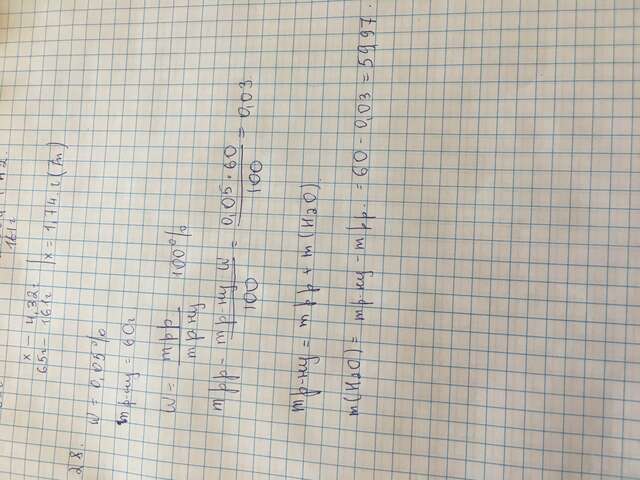 161г
x – 4,32г
65г – 161г
x = 1,74 г (Zn)
28.
W = 0,05%
mр-ну = 60г
W = mрр / mр-ну 100%
mрр = mр-ну W / 100 = 0,05 · 60 / 100 = 0,03
mр-ну = mрр + m(H2O)
m(H2O) = mр-ну - mрр. = 60 - 0,03 = 59,97.